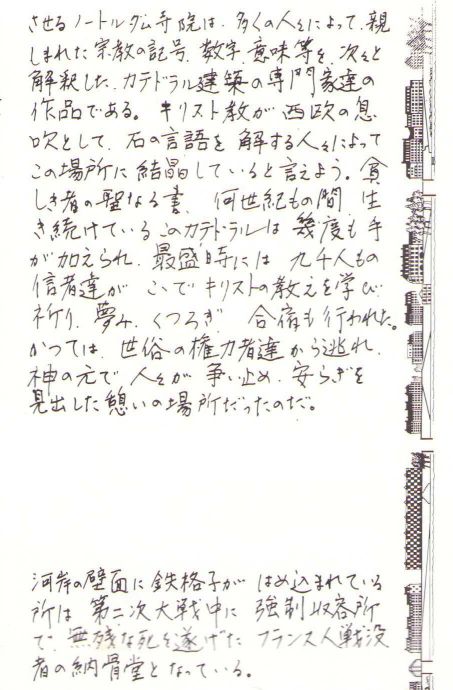 させるノートルダム寺院は、多くの人々によって、親
しまれた宗教の記号、数字、意味等を、次々と
解釈した、カテドラル建築の専門家達の
作品である。キリスト教が西欧の息
吹として、石の言語を解する人々によって
この場所に結晶していると言えよう。貧
しき者の聖なる書、何世紀もの間、生
き続けているこのカテドラルは幾度も手
が加えられ、最盛時には九千人もの
信者達がここでキリストの教えを学び
祈り、夢み、くつろぎ、合宿も行われた。
かつては、世俗の権力者達から逃れ、
神の元で人々が争い止め、安らぎを
見出した憩いの場所だったのだ。
河岸の壁面に鉄格子がはめ込まれている
所は第二次大戦中に強制収容所
で、無残な死を遂げたフランス人戦没
者の納骨堂となっている。